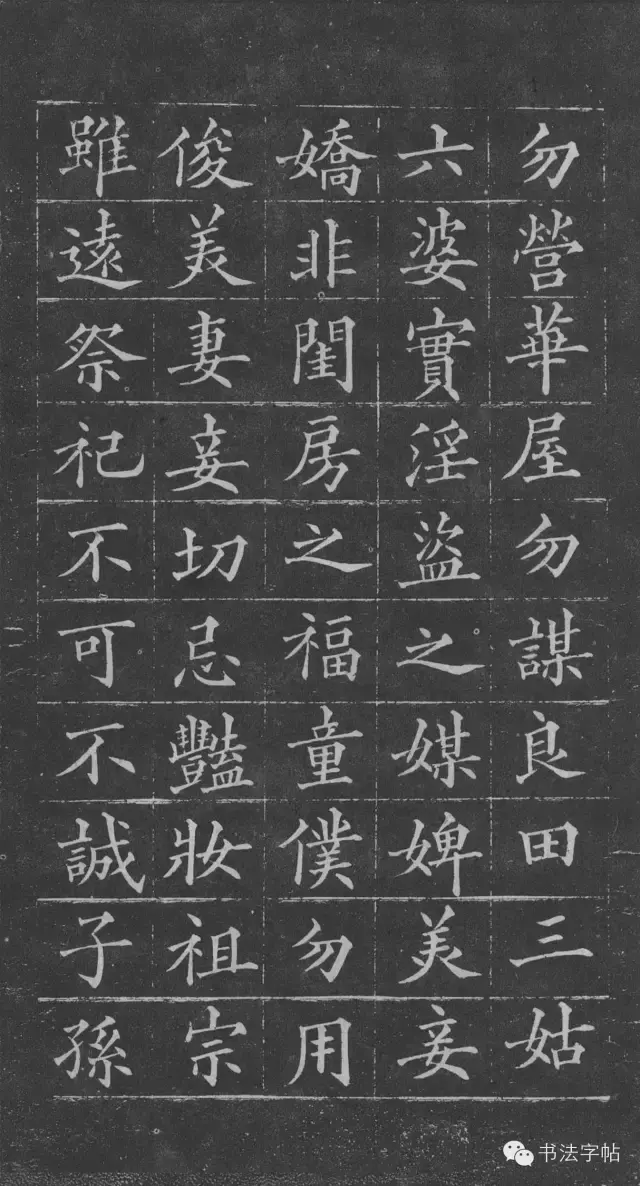 勿營華屋勿謀良田三姑
六婆實淫盜之媒婢美妾
嬌非閨房之福童僕勿用
俊美妻妾切忌豔妝祖宗
雖遠祭祀不可不誠子孫
书法字帖